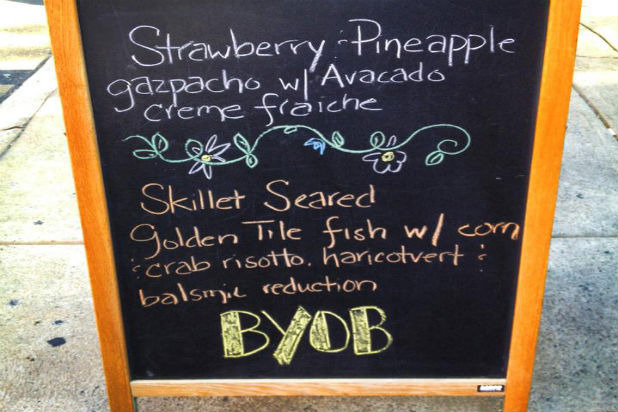 Strawberry : Pineapple
gazpacho w/ Avacado
creme fraiche
Skillet Seared
golden Tile fish w/ corn
: crab risotto. haricotvert :
balsmic reduction
BYOB